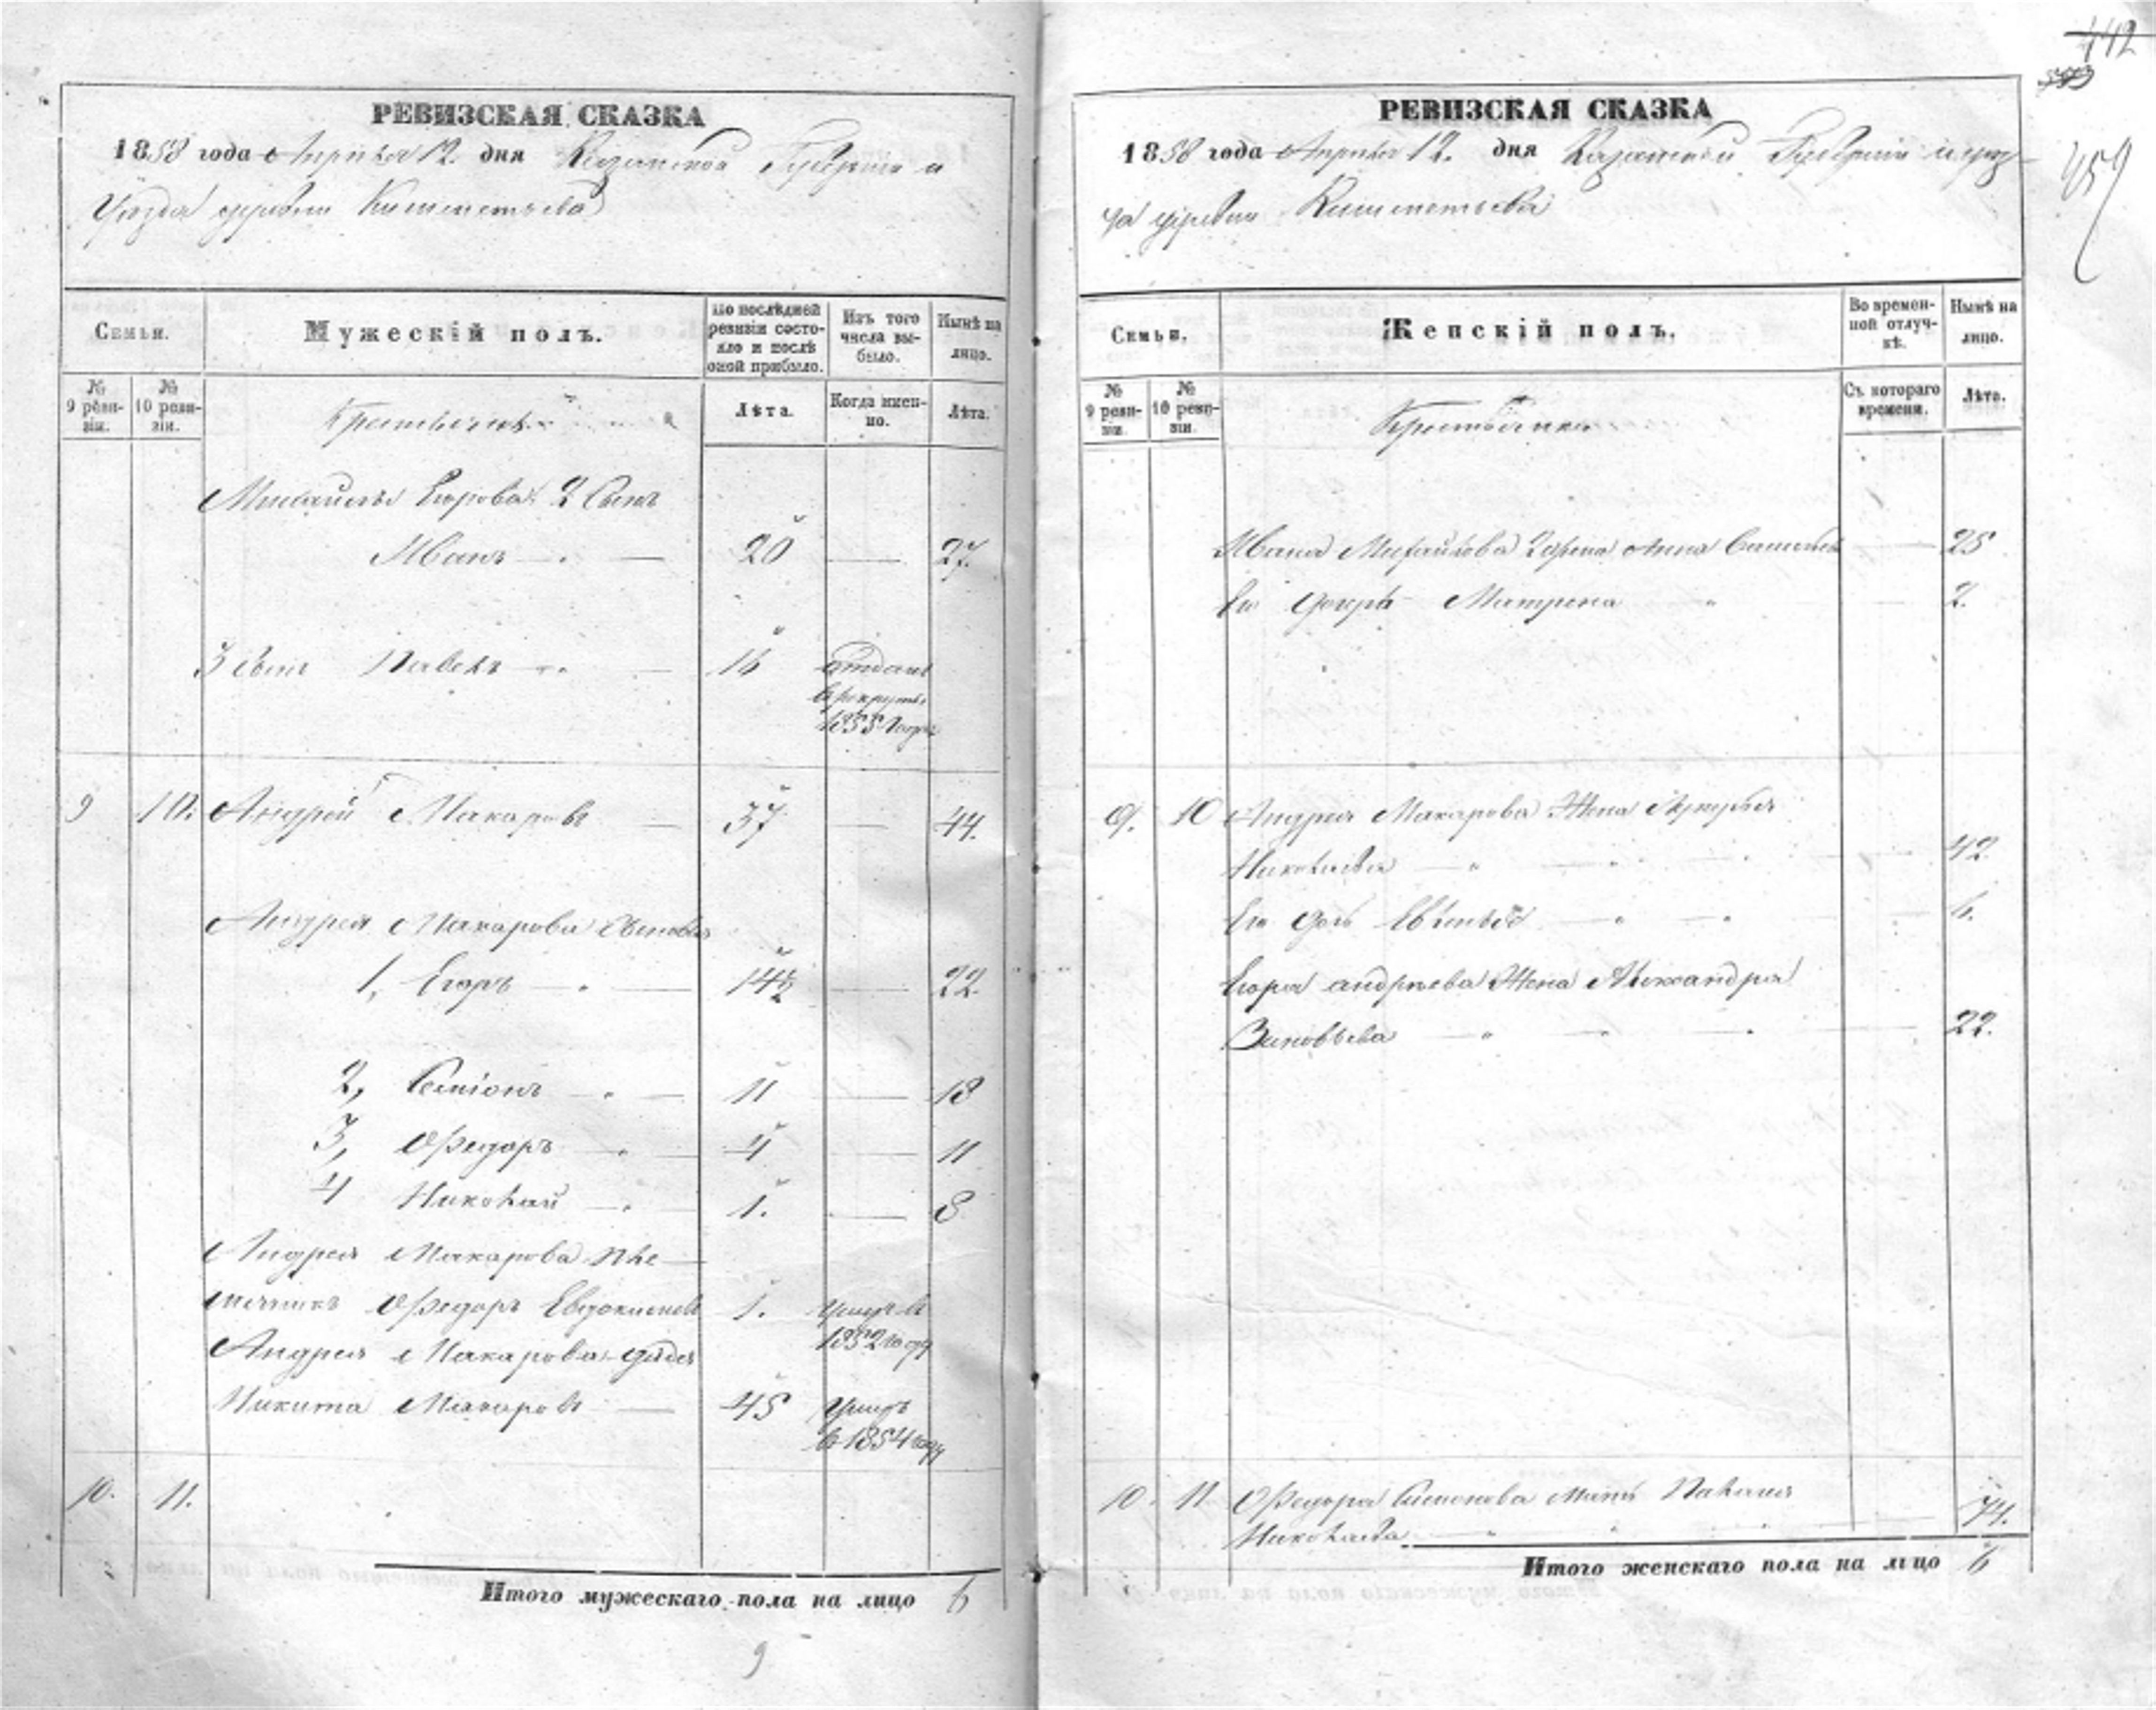 442
459
РЕВИЗСКАЯ СКАЗКА
1858 года Апреля 12. дня Казанской Губерніи и
Уѣзда деревни
Семьи.
Мужескій полъ.
По послѣдней ревизіи состояло и послѣ оной прибыло.
Изъ того числа выбыло.
Нынѣ на лицо.
№ 9 ревизіи.
№ 10 ревизіи.
Лѣта.
Когда именно.
Лѣта.
Михайлы Егорова 2 Сынъ
Иванъ 20 27.
3 Сынъ Павелъ 16 отданъ
в рекруты
1855 года
9 10. Андрей Макаровъ 37 44.
Андрея Макарова Сыновья
1, Егоръ 14½ 22.
2, Семіонъ 11 18
3, Федоръ 4 11
4 Николай 1. 8
Андрея Макарова пле
мянникъ Федоръ Евдокимовъ 1. умеръ в
1852 году
Андрея Макарова дядя
Никита Макаровъ 45 Умеръ
в 1854 году
10. 11.
Итого мужескаго пола на лицо 6
9
РЕВИЗСКАЯ СКАЗКА
1858 года Апреля 12. дня Казанской Губерніи и уез
да деревни
Семьи.
Женскій полъ.
Во временной отлучкѣ.
Нынѣ на лицо.
№ 9 ревизіи.
№ 10 ревизіи.
Съ котораго времени.
Лѣта.
Ивана Михайлова Жена Анна 25
Его дочрь Матрена 2.
9. 10 Андрея Макарова Жена
Николаева 42
Его дочь 6.
Егора андрѣева Жена Александра
Зиновьева 22.
10. 11 Федора Симонова мать
Николаева 74.
Итого женскаго пола на лицо 6